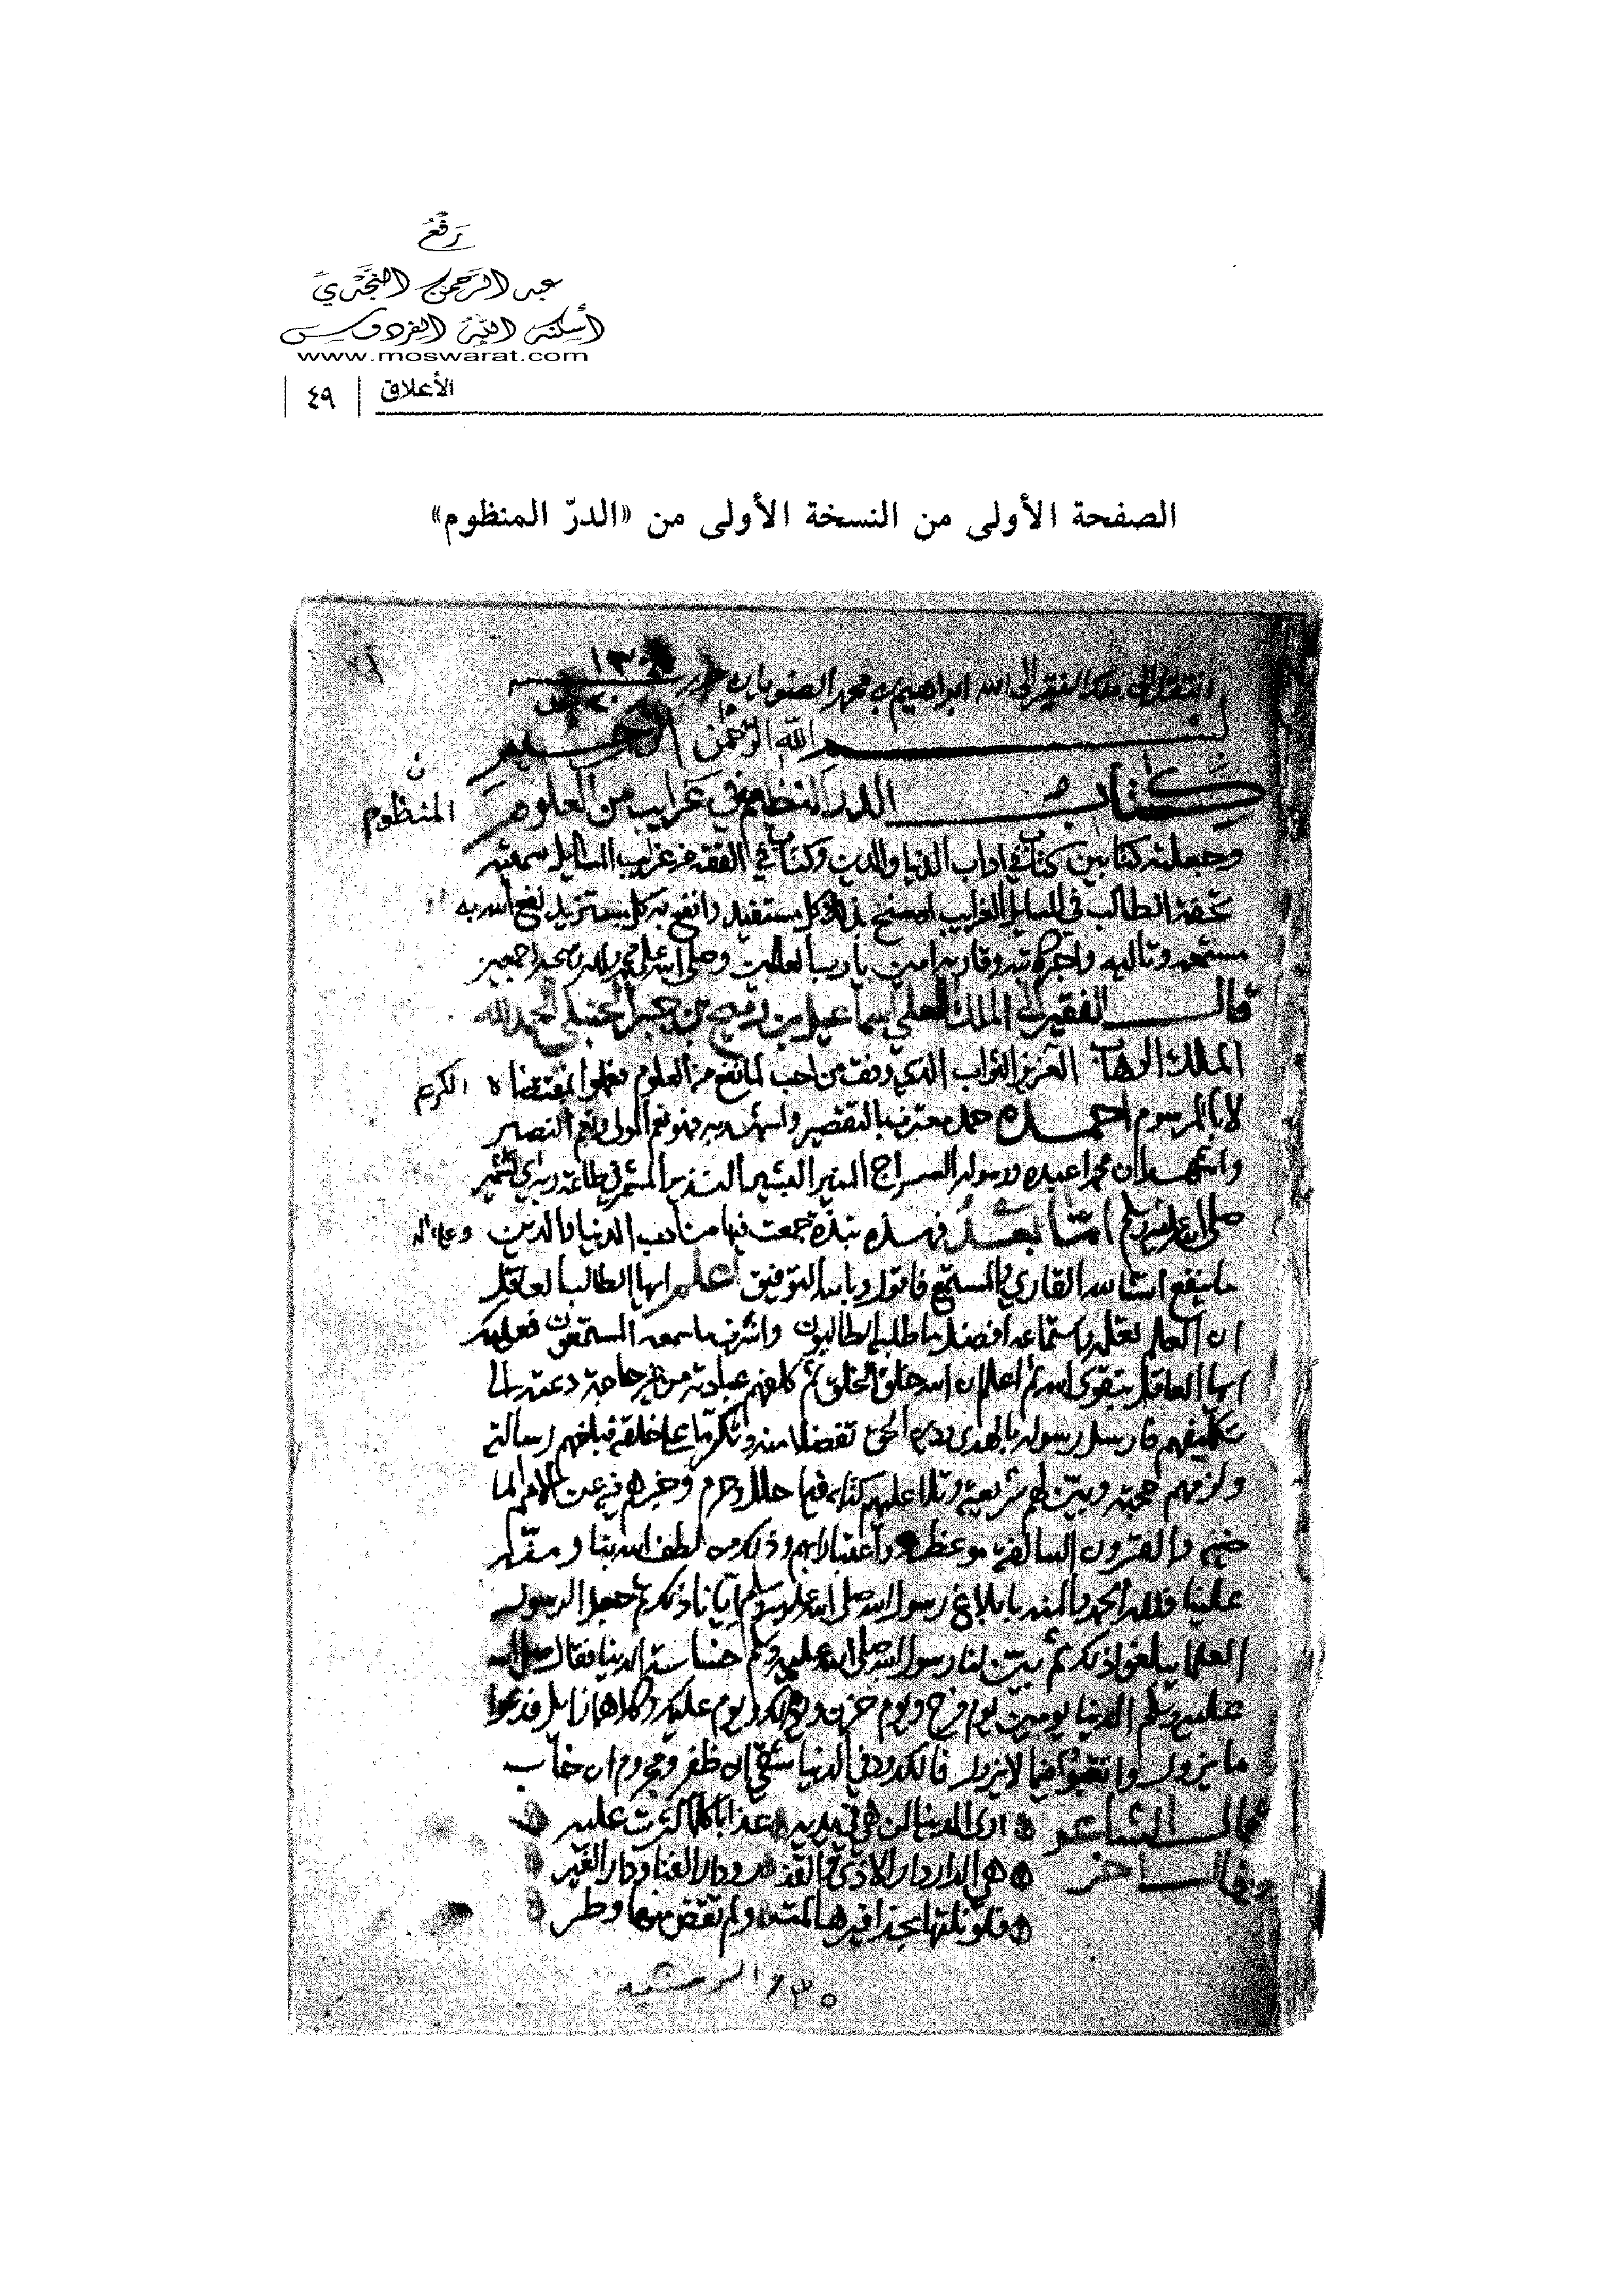 رَفْعُ
عبد الرحمن النجدي
أسكنه الله الفردوس
www.moswarat.com
الأعلاق | ٤٩ |
الصفحة الأولى من النسخة الأولى من «الدرّ المنظوم»
الفقير الى الله ابراهيم بن محمد
بسم الله الرحمن الرحيم
كتاب الدر المنظوم في غرايب من العلوم
المنظوم
وجعلته كتابين كتاب في اداب الدنيا والدين وكتاب في الفقه من غرايب المسايل سميته
تحفة الطالب في المسايل الغرايب كل مستفيد وانفع به كل مستزيد نفع الله به
مستمعه وتاليه وقاريه امين يا رب العالمين وصلى الله على محمد اجمعين
قال الفقير الى الملك العلي اسماعيل بن رميح بن جبر الحنبلي الحمد لله
الملك الوهاب العزيز التواب الذي وفق من احب لما نفع من العلوم
الكريم
لا بالمرسوم احمده حمد معترف بالتقصير واستهديه فهو نعم المولى ونعم النصير
واشهد ان محمدا عبده ورسوله السراج المنير البشير النذير المشمر في طاعة ربه
صلى الله عليه وسلم اما بعد فهذه نبذة جمعت فيها من ادب الدنيا والدين
وعلى اله
ما ينفع ان شا الله القاري والمستمع فاقول وبالله التوفيق اعلم ايها الطالب العاقل
ان العلم افضل ما طلبه الطالبون واشرف ما سمعه المستمعون فعليك
ايها العاقل بتقوى الله ثم اعلم ان الله خلق الخلق ثم كلفهم عبادته من غير حاجة دعته الى
تكليفهم فارسل رسوله بالهدى ودين الحق تفضلا منه وتكرما على خلقه فبلغهم رسالته
ولزمهم حجته وبين لهم شريعته وتلا عليهم كتابه فيما حلل وحرم وخبرهم فيه عن الامم الما
ضيه والقرون السالفة موعظة واعتبارا لهم وذلك من لطف الله بنا ومنته
علينا فلله الحمد والمنه بابلاغ رسول الله صلى الله عليه وسلم ايانا ذلك ثم جعل الرسول
العلما يبلغوا ذلك ثم بين لنا رسول الله صلى الله عليه وسلم خساسة الدنيا فقال صلى الله
عليه وسلم الدنيا يومين يوم فرح ويوم حزن ويوم لك ويوم عليك وكلاهما زايل فدعوا
ما يزول واتعبوا فيما لا يزول فالكدود في الدنيا شقي ان ظفر ومحروم ان خاب
قال الشاعر ارى الدنيا لمن هي في يديه عذابا كلما كثرت عليه
وقال اخر هي الدار دار الاذى والقذى ودار الفنا ودار الغير
فلو نلتها بحذافيرها لمت ولم تقض منها وطر